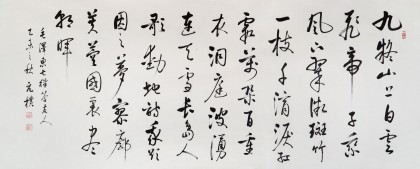 九嶷山上白雲
飛帝子乘
風下翠微斑竹
一枝千滴淚紅
霞萬朵百重
衣洞庭波湧
連天雪長島人
歌動地詩我欲
因之夢寥廓
芙蓉國裏盡
朝暉
毛澤東七律答友人
乙未之秋